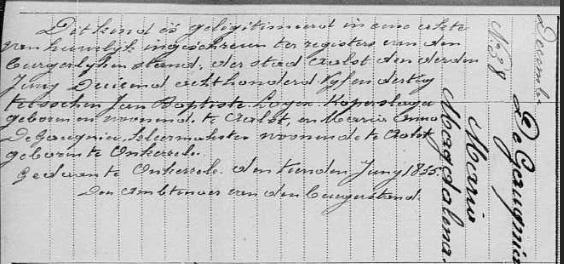 Dit kind is gelegitimeerd in eene akte
van huwelijk ingeschreven ter registers van den
burgerlyken stand, der stad Aalst den derden
Juny Duizend achthonderd Vyf en dertig
tusschen Jan Baptiste
geboren en woonende te Aalst, en Maria Anna
De Gaugnie, woonende te Aalst
geboren te Onkerzele.
Gedaan te Onkerzele. den tienden Juny 1835.
Den Ambtenaer van den burgerstand.
December
No. 38
De Gaugnie
Maria
Magdalena.